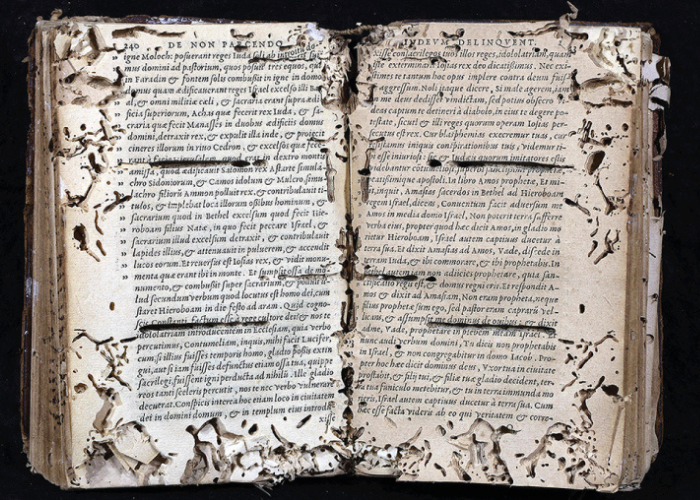 240 DE NON PARCENDO
igne Moloch: posuerant reges Iuda
mus domini ad pastorium, quos posuit tres equos, qui
in Faradin & fontem solis combussit in igne in domo
quam ædificauerant reges Israël excelso illi Ba-
al, & omni militiæ cæli, & sacraria erant supra ædi-
ficia superiorum, Achas quæ fecerit rex Iuda, & sa-
craria quæ fecit Manasses in duobus ædificijs domus
domini, detraxit rex, & expulit illa inde, & proiecit
cineres illorum in riuo Cedron, & excelsos quæ fece-
dextro montis
amissa, quod ædificauit Salomon rex Astartæ simula-
chro Sidoniorum, & Camos idolum & Malcho simu-
lachro filiorum Ammon polluit rex, & contribulauit ti-
tulos, & implebat loca illorum ossibus hominum, &
sacrarium quod in Bethel excelsum quod fecit Hie-
roboam filius Natæ, in quo fecit peccare Israël, &
sacrarium illud excelsum detraxit, & contribulauit
lapides illius, & attenuauit in puluerem, & accendit
lucos eorum. Et reuersus est Iosias rex, & vidit monu-
menta quæ erant ibi in monte. Et sumpsit ossa de mo-
numento, & combussit super sacrarium, & polluit il-
lud secundum verbum quod locutus est homo dei, cum
staret Hieroboam in die festo ad aram. Quid cogno-
scis Constanti, factum esse à rege cultore dei
idololatriam introducentem in Ecclesiam, quia verbo
percutimus, Contumeliam, inquis, mihi facit Lucife-
cum si illius fuisses temporis homo, gladio potis extin-
qui, aut si iam fuisses defunctus etiam ossa tua, quip-
sacrilegi, fuissent igni perducta ad nihilū. Ille gladio
reos tanti sceleris percutit, nos te nec verbo vulnerare
decuerat. Conspicis interea hoc etiam loco in ciuitatem
dei in domini domum, & in templum eius introdu-
xisse
IN DEVM DELINQVENT.
xisse sacrilegos tuos illos reges, idololatriam, quam
esse exterminat Iosias rex deo dicatissimus. Nec exi-
times te tantum hoc opus implere contra deum fuis-
aggressum. Nos itaque dicere, Si male egerim, iam
me deus dedisset vindictam, sed potius obsecro
deas captum te detineri à diabolo, in cuius te degere po-
testate, sicut & illi reges quorum operam Iosias per-
secutus est rex. Cur blasphemias execremur tuas, cur
tuis, videmur ti-
esse iniuriosi
debantur
tissimique apostoli. In libro Amos prophetæ, Et mi-
sit, inquit, Amasias sacerdos in Bethel ad Hieroboam
regem Israël, dicens, Conuentum facit aduersum me
Amos in media domo Israël, Non poterit terra sufferre
verba eius, propter quod hæc dicit Amos, in gladio mo-
rietur Hieroboam, Israël autem captiuus ducetur à
terra sua. Et dixit Amasias ad Amos, Vade, discede in
terram Iuda, & ibi commorare, & ibi prophetabis. In
Bethel autem non adijcies prophetare, quia san-
ctificatio regis est, & domus regni eris. Et respondit A-
mos & dixit ad Amasiam, Non eram propheta, neque
filius prophetæ sum ego, sed pastor eram caprariū Vel-
licans, & assumpsit me dominus de ouibus, & dixit
ad me, Vade, prophetare in plebem meam Israël. Et
nunc audi verbum domini, Tu dicis non prophetabis
in Israël, & non congregabitur in domo Iacob. Pro-
pter hoc hæc dicit dominus deus, Vxor tua in ciuitate
prostabit, & filij tui, & filiæ tuæ gladio decident, ter-
ra tua funiculo metiebitur, & tu in terra immunda mo-
rieris, Israël autem captiuus ducetur à terra sua. Cum
hæc esse facta videris ab eo qui veritatem & corre-